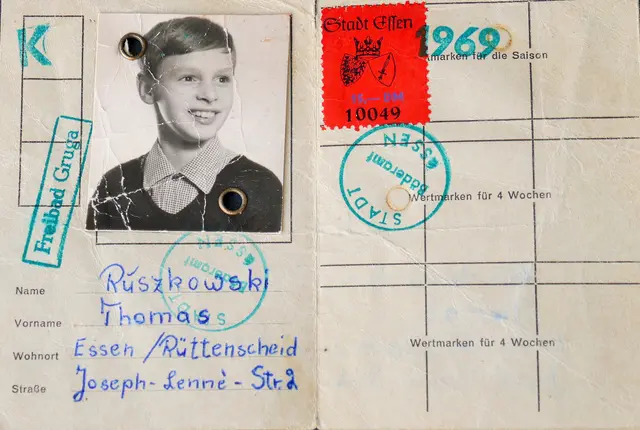 K
Freibad Gruga
Name Ruszkowski
Vorname Thomas
Wohnort Essen / Rüttenscheid
Straße Joseph-Lennè-Str. 2
STADT ESSEN
Bäderamt
Stadt Essen
10049
1969
marken für die Saison
STADT ESSEN
Bäderamt
Wertmarken für 4 Wochen
Wertmarken für 4 Wochen